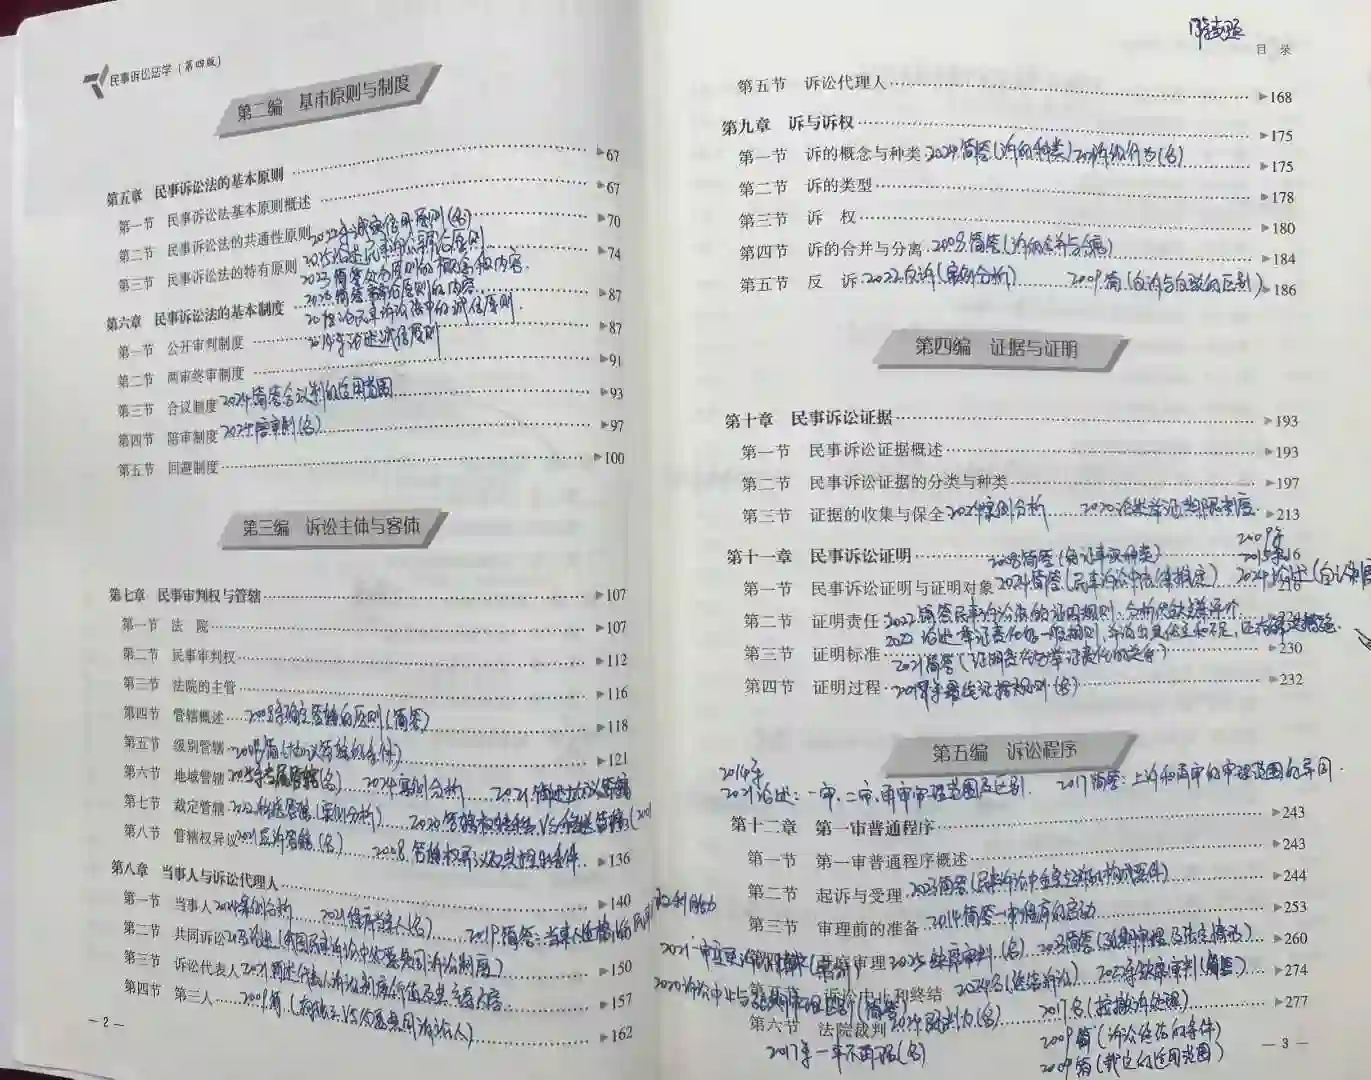 民事诉讼法学(第四版)
第二编 基本原则与制度
第五章 民事诉讼法的基本原则 67
第一节 民事诉讼法基本原则概述 67
第二节 民事诉讼法的共通性原则 70
2022年诚实信用原则(名)
第三节 民事诉讼法的特有原则 74
2023简答处分原则的概念和内容.
2025简答辩论原则的内容.
第六章 民事诉讼法的基本制度 87
第一节 公开审判制度 87
2019年论述诚信原则
第二节 两审终审制度 91
第三节 合议制度 2024.简答合议制的适用范围 93
第四节 陪审制度 2024陪审制(名) 97
第五节 回避制度 100
第三编 诉讼主体与客体
第七章 民事审判权与管辖 107
第一节 法 院 107
第二节 民事审判权 112
第三节 法院的主管 116
第四节 管辖概述 2008年确定管辖的原则(简答) 118
第五节 级别管辖 2008简(协议管辖的条件) 121
第六节 地域管辖 2025年专属管辖(名) 2024案例分析 2021.简述协议管辖
第七节 裁定管辖 2022移送管辖(案例分析) 2020.管辖权转移VS移送管辖(
第八节 管辖权异议 2021应诉管辖(名) 2008.管辖权异议及其 条件. 136
第八章 当事人与诉讼代理人 140
第一节 当事人 2024案例分析 2021.经济 人(名) 2019简答:当事人适格 权利能力
第二节 共同诉讼 2023论述(我国民事诉讼中必要共同诉讼制度) 150
第三节 诉讼代表人 2021简述代表人诉讼制度价值及其主要内容. 157
第四节 第三人 2009简.( VS必要共同诉讼人) 162
— 2 —
目 录
第五节 诉讼代理人 168
第九章 诉与诉权 175
第一节 诉的概念与种类 2024.简答(诉的种类) 诉讼行为(名) 175
第二节 诉的类型 178
第三节 诉 权 180
第四节 诉的合并与分离 2008.简答(诉的合并与分离) 184
第五节 反 诉 2022.反诉(案例分析) 2009.简(反诉与反驳的区别) 186
第四编 证据与证明
第十章 民事诉讼证据 193
第一节 民事诉讼证据概述 193
第二节 民事诉讼证据的分类与种类 197
第三节 证据的收集与保全 2024案例分析 2020.论述举证期限制度. 213
第十一章 民事诉讼证明 2008简答(免证事项种类) 2009年
第一节 民事诉讼证明与证明对象 2024.简答(民事诉讼中法律推定) 2024论述(自认制度 216
第二节 证明责任 2022.简答民事诉讼法的证明规则,分析优缺点并评价
第三节 证明标准 230
2021简答(证明责任与举证责任的关系)
第四节 证明过程 2019年最佳证据规则(名) 232
第五编 诉讼程序
2014年
2021论述:一审、二审、再审审理范围及区别. 2017简答:上诉和再审的审理范围的异同.
第十二章 第一审普通程序 243
第一节 第一审普通程序概述 243
第二节 起诉与受理 2023简答(民事诉讼中 起诉的构成要件) 244
第三节 审理前的准备 2014简答一审程序的启动 253
庭审理 2025缺席审判(名) 2023简答(延期审理及法定情形) 260
诉讼中止和终结 2024名(终结诉讼) 2023年缺席审判(简答) 274
第六节 法院裁判 2024既判力(名) 2017名(撤诉处理) 277
2017年一事不再理(名) 2009简(诉讼终结的条件)
2009简(裁定的适用范围)
— 3 —